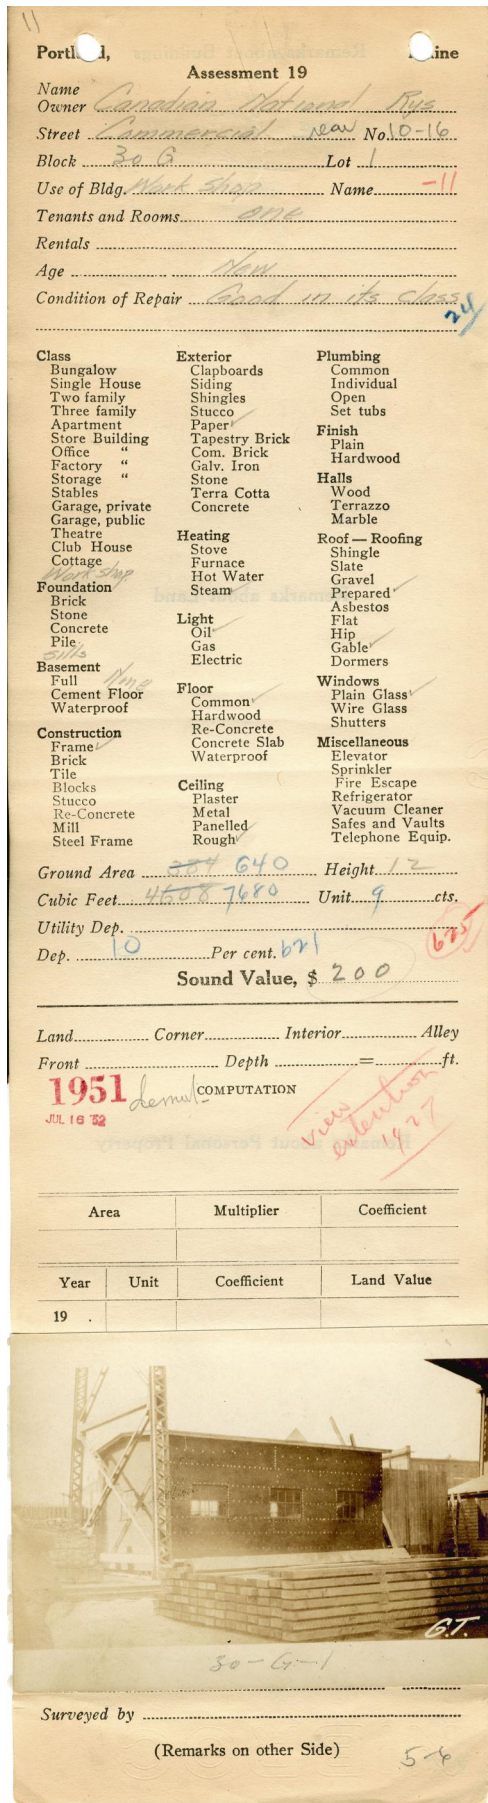 11
Portland, Maine
Assessment 19
Name
Owner Canadian National Rys
Street Commercial rear No. 10-16
Block 30 G Lot 1
Use of Bldg. Work Shop Name -11
Tenants and Rooms one
Rentals
Age New
Condition of Repair Good in its class
24/
Class
Bungalow
Single House
Two family
Three family
Apartment
Store Building
Office "
Factory "
Storage "
Stables
Garage, private
Garage, public
Theatre
Club House
Cottage
Work shop
Foundation
Brick
Stone
Concrete
Pile
Sills
Basement
Full None
Cement Floor
Waterproof
Construction
Frame ✓
Brick
Tile
Blocks
Stucco
Re-Concrete
Mill
Steel Frame
Exterior
Clapboards
Siding
Shingles
Stucco
Paper ✓
Tapestry Brick
Com. Brick
Galv. Iron
Stone
Terra Cotta
Concrete
Heating
Stove
Furnace
Hot Water
Steam ✓
Light
Oil ✓
Gas
Electric
Floor
Common ✓
Hardwood
Re-Concrete
Concrete Slab
Waterproof
Ceiling
Plaster
Metal
Panelled
Rough ✓
Plumbing
Common
Individual
Open
Set tubs
Finish
Plain
Hardwood
Halls
Wood
Terrazzo
Marble
Roof — Roofing
Shingle
Slate
Gravel
Prepared ✓
Asbestos
Flat
Hip
Gable ✓
Dormers
Windows
Plain Glass ✓
Wire Glass
Shutters
Miscellaneous
Elevator
Sprinkler
Fire Escape
Refrigerator
Vacuum Cleaner
Safes and Vaults
Telephone Equip.
Ground Area 384 640 Height 12
Cubic Feet 4608 7680 Unit 9 cts.
Utility Dep.
Dep. 10 Per cent. 621
625
Sound Value, $ 200
Land Corner Interior Alley
Front Depth = ft.
1951 COMPUTATION
JUL 16 '52
view
extention
1927
Area Multiplier Coefficient
Year Unit Coefficient Land Value
19 .
G.T.
30-G-1
Surveyed by
(Remarks on other Side)
5-6